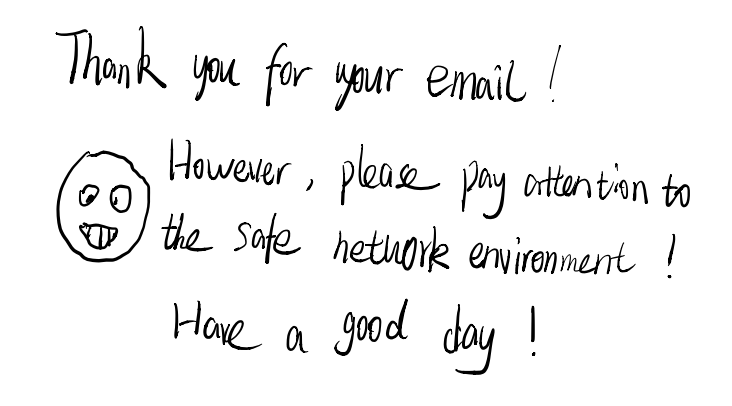 Thank you for your email!
However, please pay attention to
the safe network environment!
Have a good day!